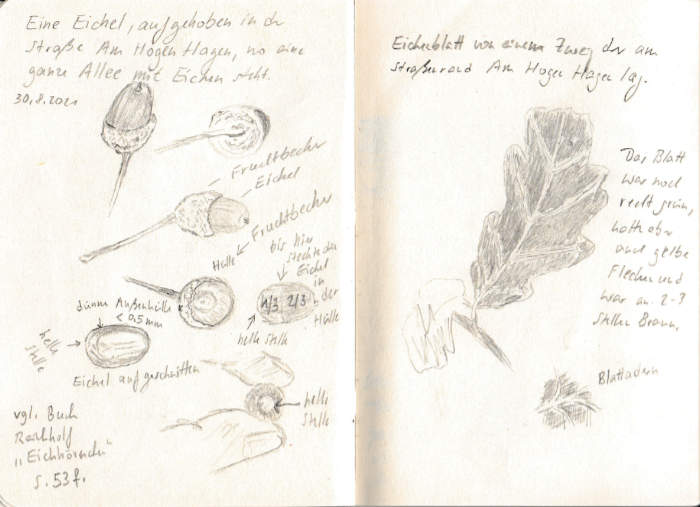 Eine Eichel, aufgehoben in der
Straße Am Hogen Hagen, wo eine
ganze Allee mit Eichen steht.
30.8.2021
Fruchtbecher
Eichel
Fruchtbecher
Hülle
bis hier
steckte die
Eichel
in
der
Hülle
1/3 2/3
dünne Außenhülle
< 0,5 mm
helle
Stelle
helle Stelle
Eichel aufgeschnitten
helle
Stelle
vgl. Buch
Reichholf
"Eichhörnchen"
S. 53 f.
Eichenblatt von einem Zweig der am
Straßenrand Am Hogen Hagen lag.
Das Blatt
war noch
recht grün,
hatte aber
auch gelbe
Flecken und
war an 2-3
Stellen Braun.
Blattadern